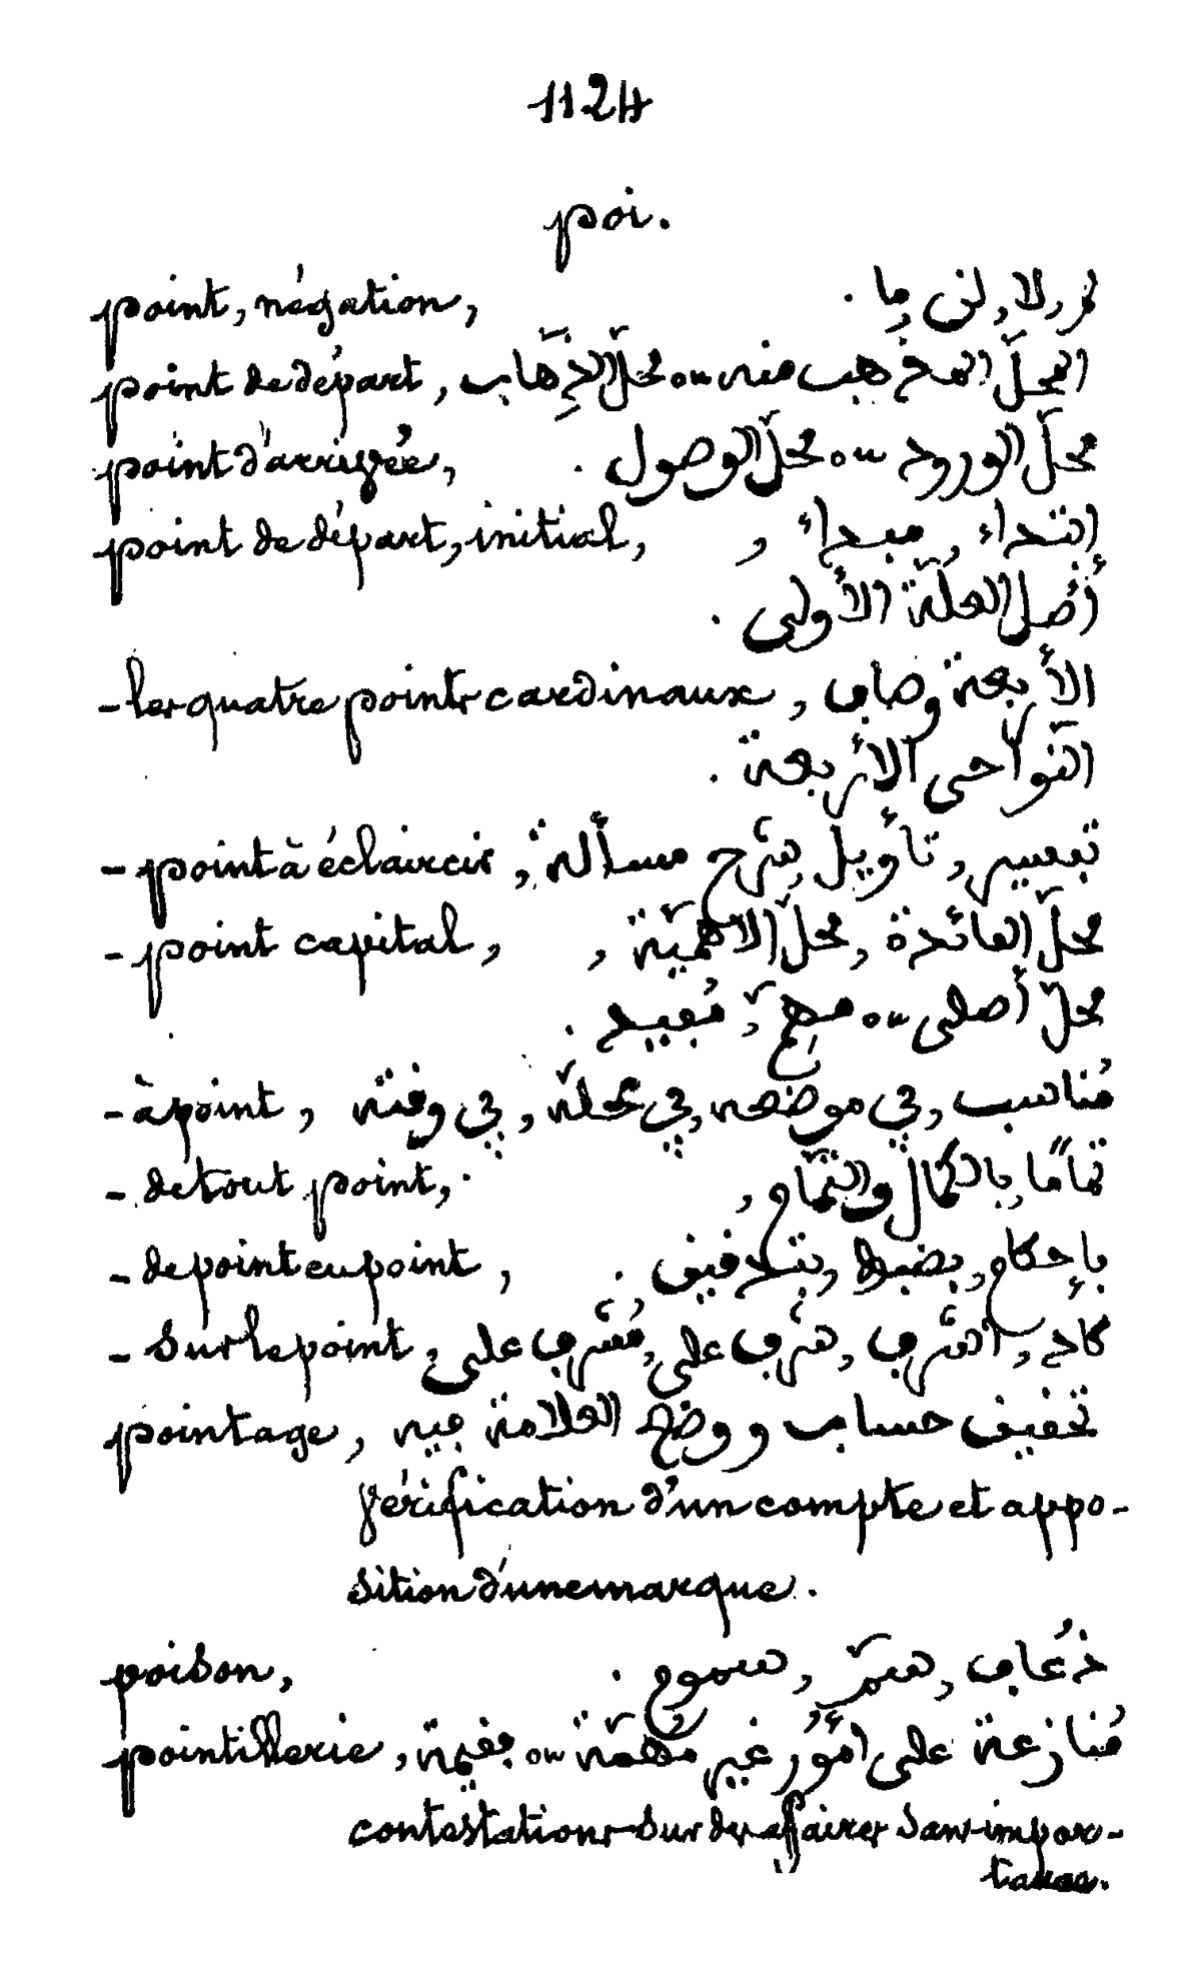 1124
poi.
point, négation, لم, لا, لن, ما.
point de départ, المحلّ المذهب منه ou محلّ الذَّهاب
point d'arrivée, محلّ الورود ou محلّ الوصول.
point de départ, initial, ابتداء, مبداء,
أصل العلّة الأولى.
- les quatre points cardinaux, الأربعة
النّواحى الأربعة.
- point à éclaircir, تفسير, تأويل, شرح مسألة,
- point capital, محلّ الفائدة, محلّ الاهمّيّة,
محلّ أصلى ou مهمّ, مُفيد.
- à point, مُناسب, في موضعه, في محلّه, في وقته
- de tout point, تمامًا, بالكمال والتّمام,
- de point en point, بإحكام, بضبط, بتدقيق.
- sur le point, كاد, اشرف, شرف على, مُشرف على,
pointage, تحقيق حساب ووضع العلامة فيه
vérification d'un compte et appo-
sition d'une marque.
poison, ذُعاف, سمّ, سموم.
pointillerie, مُنازعة على أمُور غير مُهمّة ou
contestations sur des affaires sans impor-
tance.